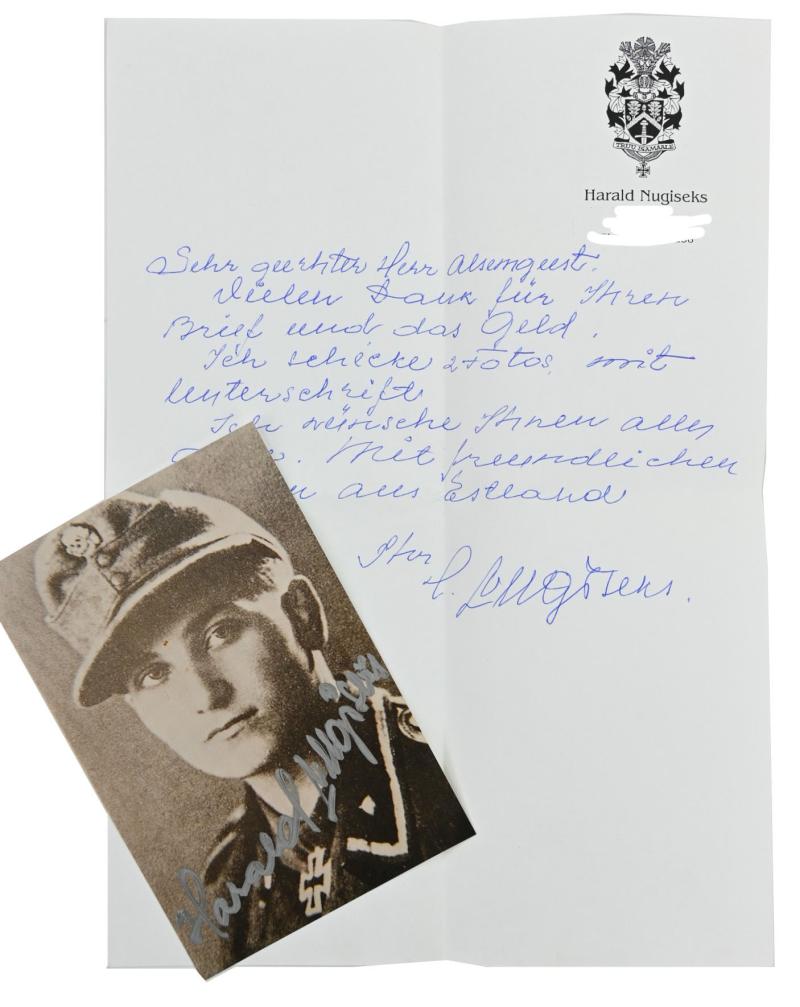 TRUU ISAMAALE
Harald Nugiseks
Sehr geerhter Herr Alsemgeest.
Vielen Dank für Ihren
Brief und das Geld.
Ich schicke 2 Fotos mit
Unterschrift
Ich wünsche Ihnen alles
Mit freundlichen
aus Estland
Ihr
H. Nugiseks.
Harald Nugiseks